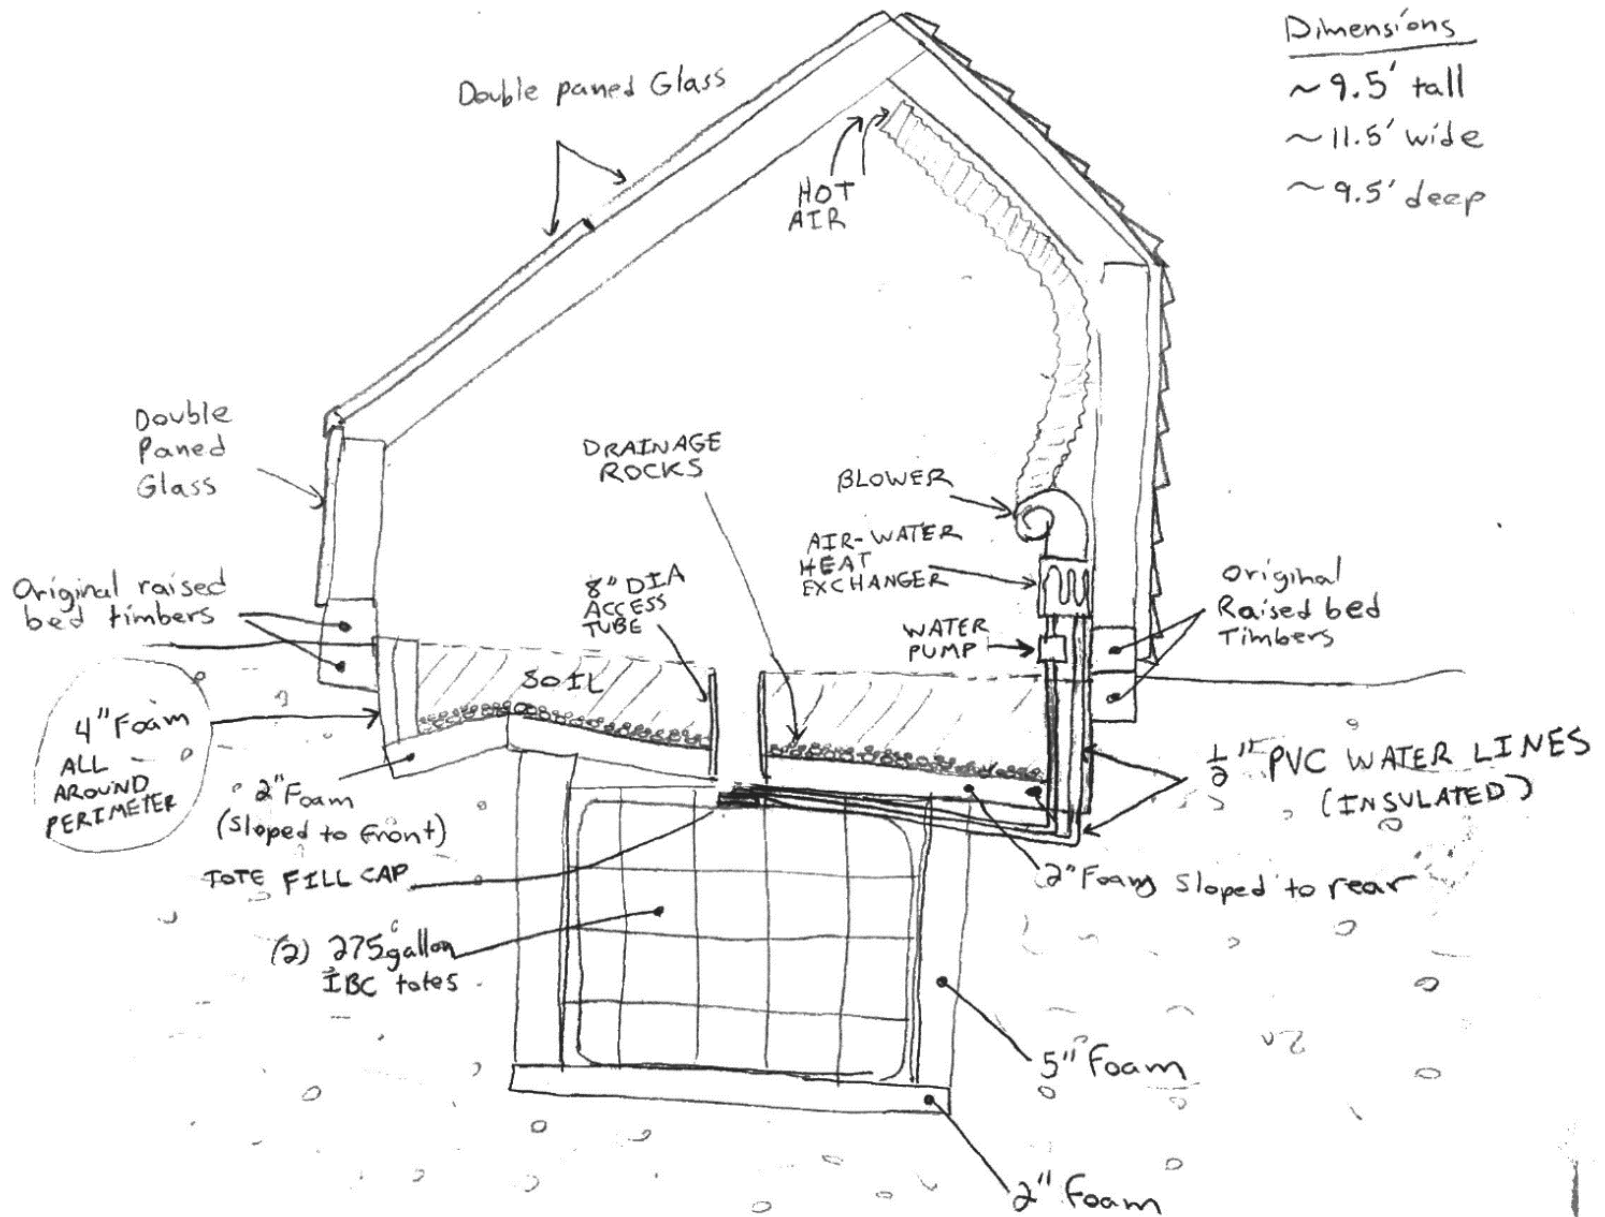 Dimensions
~9.5' tall
~11.5' wide
~9.5' deep
Double paned Glass
HOT
AIR
Double
Paned
Glass
DRAINAGE
ROCKS
BLOWER
AIR-WATER
HEAT
EXCHANGER
8" DIA
ACCESS
TUBE
WATER
PUMP
Original raised
bed timbers
Original
Raised bed
Timbers
SOIL
4" Foam
ALL
AROUND
PERIMETER
2" Foam
(sloped to front)
1/2" PVC WATER LINES
(INSULATED)
TOTE FILL CAP
2" Foam sloped to rear
(2) 275 gallon
IBC totes
5" Foam
2" Foam